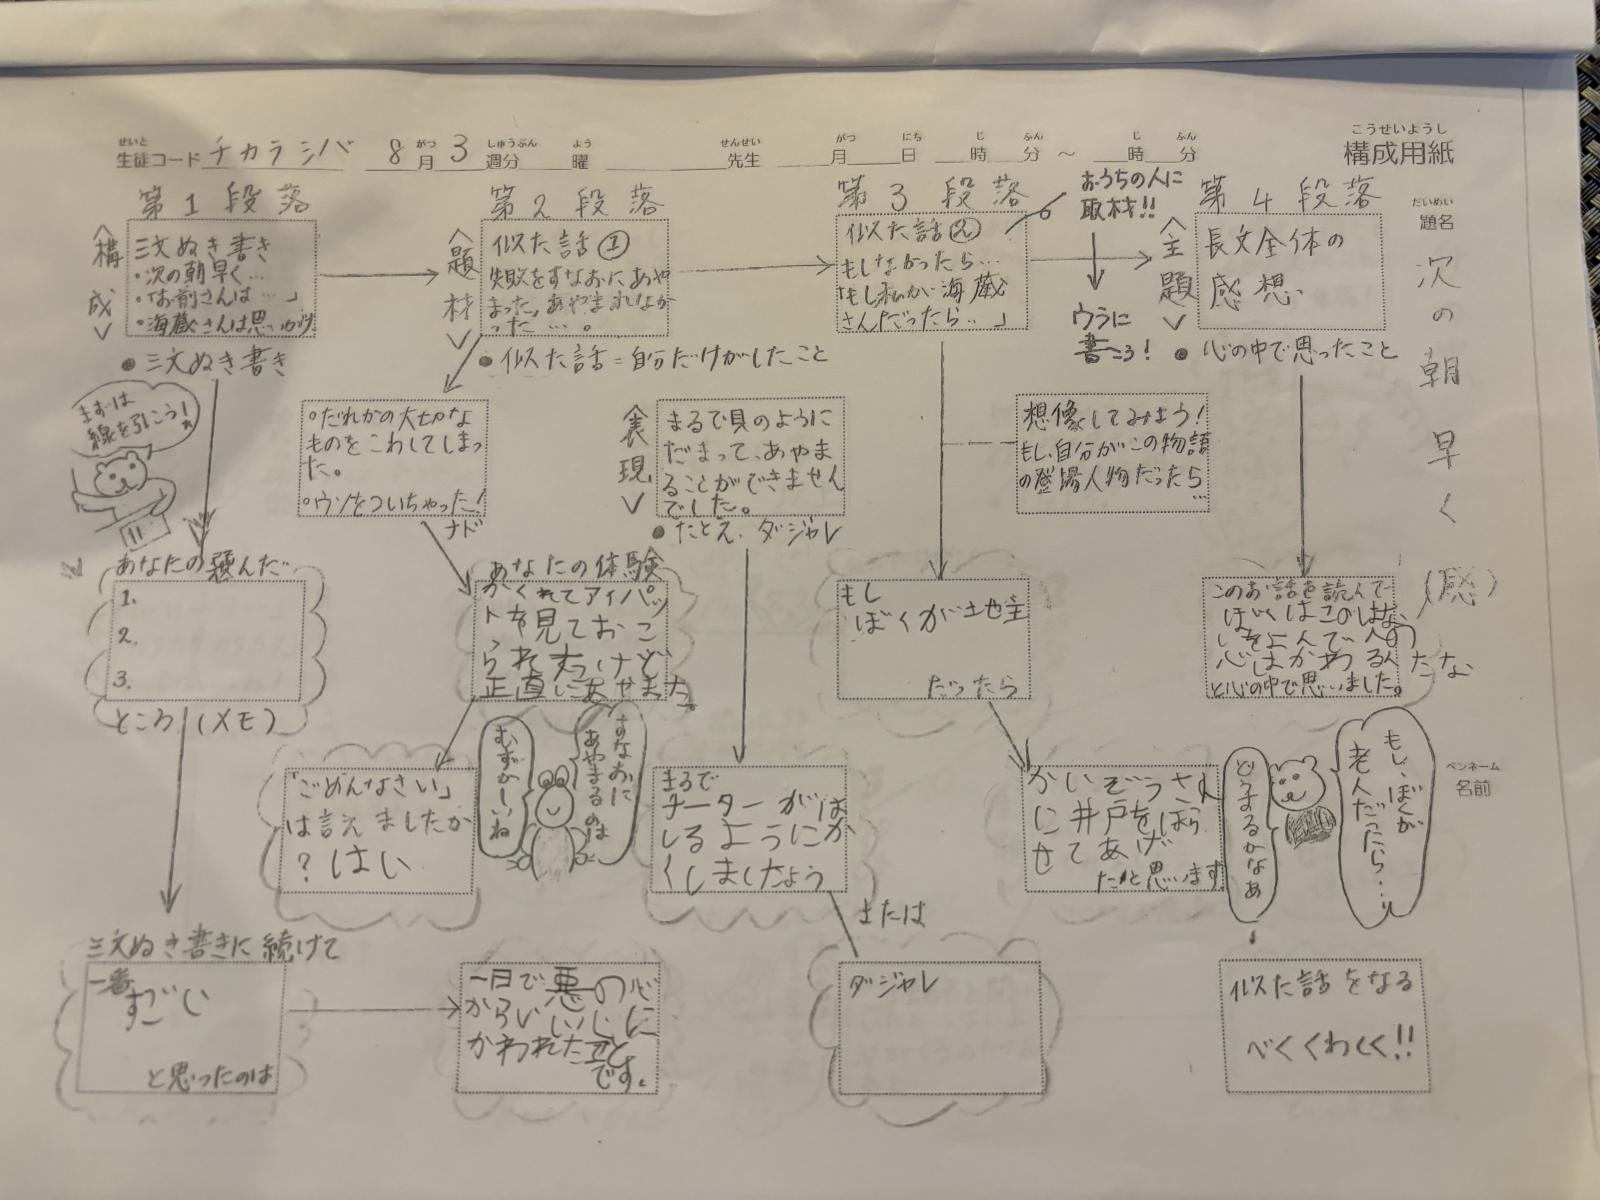 構成用紙
こうせいようし
せいと
生徒コード チカラシバ 8月 3週分 曜 先生 月 日 時 分 ～ 時 分
がつ しゅうぶん よう せんせい がつ にち じ ふん じ ふん
だいめい
題名
次の朝早く
(感)
ペンネーム
名前
第1段落
<構成>
三文ぬき書き
・次の朝早く…
・「お前さんは…」
・海蔵さんは思いがけ
●三文ぬき書き
まずは
線を引こう!
あなたの選んだ
1.
2.
3.
ところ(メモ)
三文ぬき書きに続けて
一番
すごい
と思ったのは
一日で悪の心
からいい心に
かわれた事
です。
第2段落
<題材>
似た話①
失敗をすなおにあや
まった。あやまれなか
った…。
●似た話=自分だけがしたこと
○だれかの大切な
ものをこわしてしまっ
た。
○ウソをついちゃった!
ナド
あなたの体験
かくれてアイパッ
トを見ておこ
られ けど
正直にあやまった。
「ごめんなさい」
は言えましたか
?はい
すなおに
あやまるのは
むずかしいね
<表現>
まるで貝のように
だまって、あやま
ることができません
でした。
●たとえ、ダジャレ
まるで
チーターがは
しるようにか
くしましたよう
または
ダジャレ
第3段落
似た話②
もしなかったら…
「もし私が海蔵
さんだったら…」
おうちの人に
取材!!
ウラに
書こう!
想像してみよう!
もし、自分がこの物語
の登場人物だったら
…
もし
ぼくが地主
だったら
かいぞうさん
に井戸をほら
せてあげ
たと思います
第4段落
<主題>
長文全体の
感想
●心の中で思ったこと
このお話を読んで
ぼくはこのはな
しをよんで人の
心はかわるん
だな
と心の中で思いました。
もし、ぼくが
老人だったら…
どうするかなあ
似た話をなる
べくくわしく!!